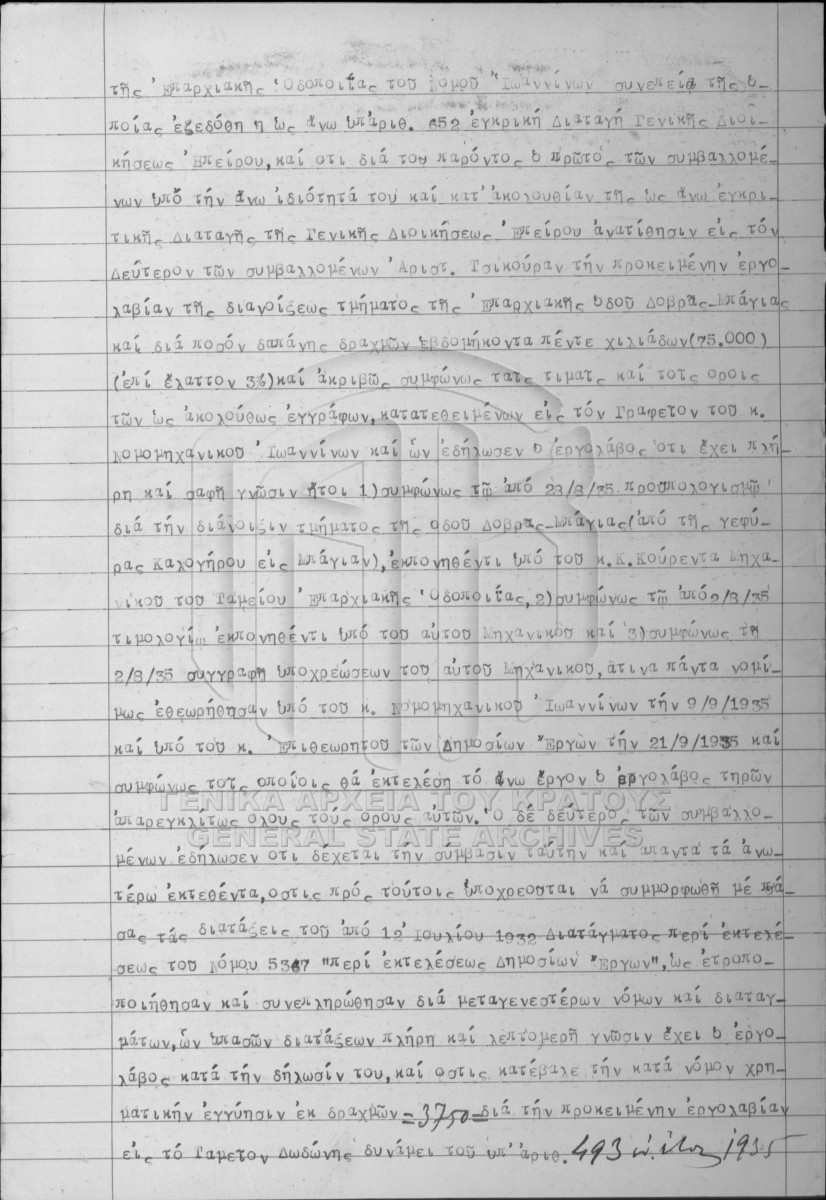 τῆς Ἐπαρχιακῆς Ὁδοποιΐας τοῦ Νομοῦ Ἰωαννίνων συνεπείᾳ τῆς ὁ-
ποίας ἐξεδόθη ἡ ὡς ἄνω ὑπ'ἀριθ. 652 ἐγκρική Διαταγή Γενικῆς Διοι-
κήσεως Ἠπείρου, καί οτι διά του παρόντος ὁ πρῶτος τῶν συμβαλλομέ-
νων ὑπό τήν ἄνω ἰδιότητά του καί κατ'ἀκολουθίαν τῆς ὡς ἄνω ἐγκρι-
τικῆς Διαταγῆς τῆς Γενικῆς Διοικήσεως Ἠπείρου ἀνατίθησιν εἰς τόν
Δεύτερον τῶν συμβαλλομένων Ἀριστ. Τσικούραν τήν προκειμένην ἐργο-
λαβίαν τῆς διανοίξεως τμήματος τῆς Ἐπαρχιακῆς ὁδοῦ Δοβρᾶς-Μπάγιας
καί διά ποσόν δαπάνης δραχμῶν ἑβδομήκοντα πέντε χιλιάδων(75.000)
(ἐπί ἔλαττον 3%)καί ἀκριβῶς συμφώνως ταῖς τιμαῖς καί τοῖς οροις
τῶν ὡς ἀκολούθως ἐγγράφων, κατατεθειμένων εἰς τόν Γραφεῖον τοῦ κ.
Νομομηχανικοῦ Ἰωαννίνων καί ὧν ἐδήλωσεν ὁ ἐργολάβος ὅτι ἔχει πλή-
ρη καί σαφῆ γνῶσιν ἤτοι 1)συμφώνως τῷ ἀπό 23/8/35 προϋπολογισμῷ
διά τήν διάνοιξιν τμήματος τῆς οδοῦ Δοβρᾶς-Μπάγιας(ἀπό τῆς γεφύ-
ρας Καλογήρου εἰς Μπάγιαν), ἐκπονηθέντι ὑπό τοῦ κ.Κ.Κούρεντα Μηχα-
νικοῦ τοῦ Ταμείου Ἐπαρχιακῆς Ὁδοποιΐας, 2)συμφώνως τῷ ἀπό 2/8/35
τιμολογίῳ ἐκπονηθέντι ὑπό τοῦ αὐτοῦ Μηχανικοῦ καί 3)συμφώνως τῇ
2/8/35 συγγραφῇ ὑποχρεώσεων τοῦ αὐτοῦ Μηχανικοῦ, ἅτινα πάντα νομί-
μως ἐθεωρήθησαν ὑπό τοῦ κ. Νομομηχανικοῦ Ἰωαννίνων τήν 9/9/1935
καί ὑπό τοῦ κ. Ἐπιθεωρητοῦ τῶν Δημοσίων Ἔργων τήν 21/9/1935 καί
συμφώνως τοῖς οποίοις θά ἐκτελέσῃ τό ἄνω ἔργον ὁ ἐργολάβος τηρῶν
ἀπαρεγκλίτως ὅλους τούς ὅρους αὐτῶν. Ὁ δέ δεύτερος τῶν συμβαλλο-
μένων ἐδήλωσεν οτι δέχεται τήν σύμβασιν ταύτην καί απαντα τά ἀνω-
τέρω ἐκτεθέντα, οστις πρός τούτοις ὑποχρεοῦται νά συμμορφωθῇ μέ πά-
σας τάς διατάξεις τοῦ ἀπό 12 Ἰουλίου 1932 Διατάγματος περί ἐκτελέ-
σεως τοῦ Νόμου 5367 "περί ἐκτελέσεως Δημοσίων Ἔργων", ὡς ἐτροπο-
ποιήθησαν καί συνεπληρώθησαν διά μεταγενεστέρων νόμων καί διαταγ-
μάτων, ὧν ὑπασῶν διατάξεων πλήρη καί λεπτομερῆ γνῶσιν ἔχει ὁ ἐργο-
λάβος κατά τήν δήλωσίν του, καί οστις κατέβαλε τήν κατά νόμον χρη-
ματικήν ἐγγύησιν ἐκ δραχμῶν =3750= διά τήν προκειμένην ἐργολαβίαν
εἰς τό Ταμεῖον Δωδώνης δυνάμει τοῦ ὑπ'ἀριθ. 493 1935
ΓΕΝΙΚΑ ΑΡΧΕΙΑ ΤΟΥ ΚΡΑΤΟΥΣ
GENERAL STATE ARCHIVES